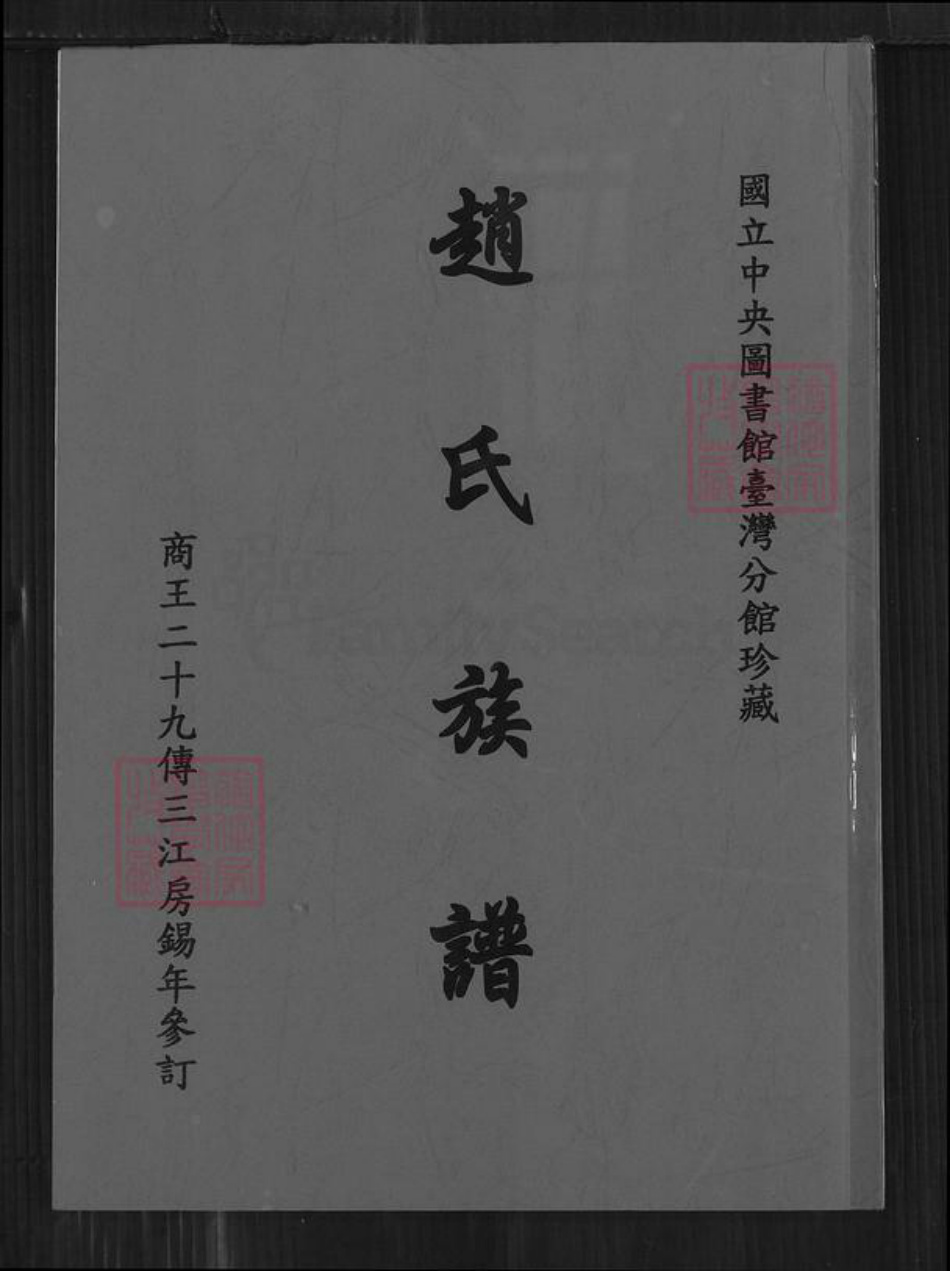 國立中央圖書館臺灣分館珍藏
趙氏族譜
商王二十九傳三江房錫年參訂